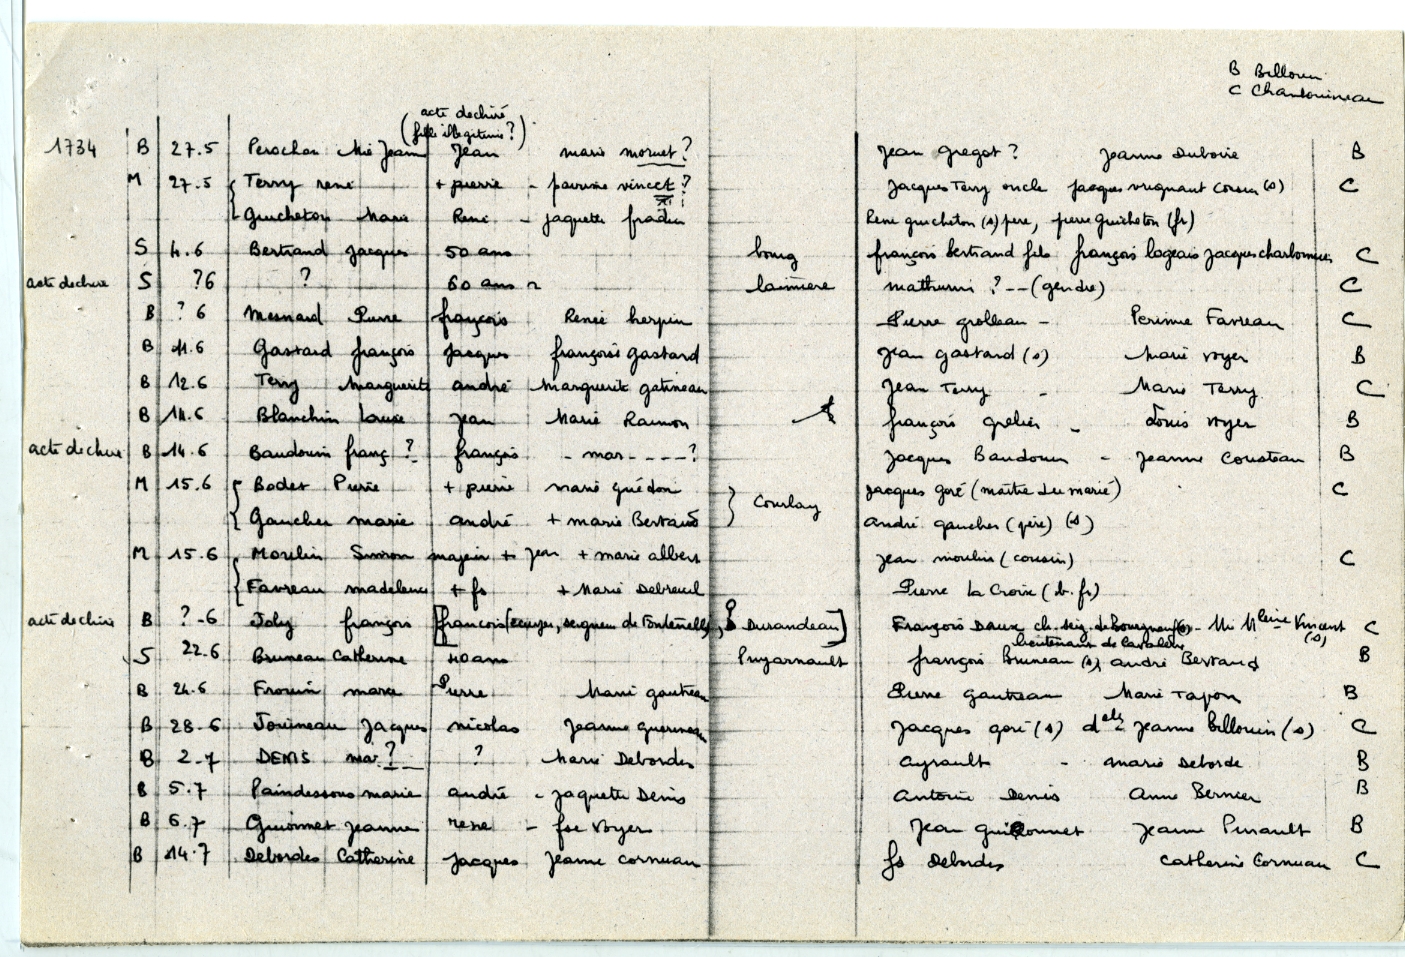 B Billouin
C Chantouineau
acte dechiré
(fille illegitime?)
1734 B 27.5 Perochon Mie Jeanne Jean marie mornet? Jean gregot? Jeanne Duboire B
M 27.5 { Terry rené + pierre - perrine vincet? Jacques Terry oncle Jacques vrignant cousin (s) C
Guicheton Marie René - jaquette fradin René guicheton (s) pere, pierre guicheton (fr)
S 4.6 Bertrand Jacques 50 ans bourg françois bertrand fils françois logeais jacques charbonnier C
acte dechiré S ?6 ? 60 ans mathurin ?--(gendre) C
B ?6 Mesnard Pierre françois Renée herpin Pierre grolleau - Perinne Favreau C
B 11.6 Gastard françois Jacques françoise gastard Jean gastard (s) Marie voyer B
B 12.6 Terry Marguerite andré Marguerite gatineau Jean Terry - Marie Terry C
B 14.6 Blanchin Louise Jean Marie Ramon françois grelier - Louis voyer B
acte dechiré B 14.6 Baudouin franç ? françois - mar----? Jacques Baudouin - Jeanne Cousteau B
M 15.6 { Bodet Pierre + pierre marie guédon } Courlay Jacques goré (maître du marié) C
Gaucher marie andré + marie Bertaud andré gaucher (père) (s)
M 15.6 { Moulin Simon majeur + Jean + marie albert Jean moulin (cousin) C
Favreau madeleine + fs + Marie Debreuil Pierre La Croix (b.fr)
acte dechiré B ?-6 Joly françois [francois (ecuyer, seigneur de Fontenelle), Durandeau] François Daux ch. seig. de Bourgneuf (s) - Mie Mleine Vincent (s) C
lieutenant de cavalerie
S 22.6 Bruneau Catherine 40 ans Puyarnault françois Bruneau (s), andré Bertaud B
B 24.6 Frouin marie Pierre Marie gautreau Pierre gautreau Marie Tapon B
B 28.6 Jouineau Jacques nicolas Jeanne guerineau Jacques goré (s) delle Jeanne billouin (s) C
B 2-7 DENIS mar ? ? Marie Debordes ayrault - marie Deborde B
B 5.7 Paindessous marie andré - jaquette Denis antoine Denis Anne Bernier B
B 6.7 Guionnet Jeanne rene - fse voyer Jean guionnet Jeanne Pinault B
B 14.7 Debordes Catherine Jacques Jeanne cornuau fs Debordes Catherine Cornuau C